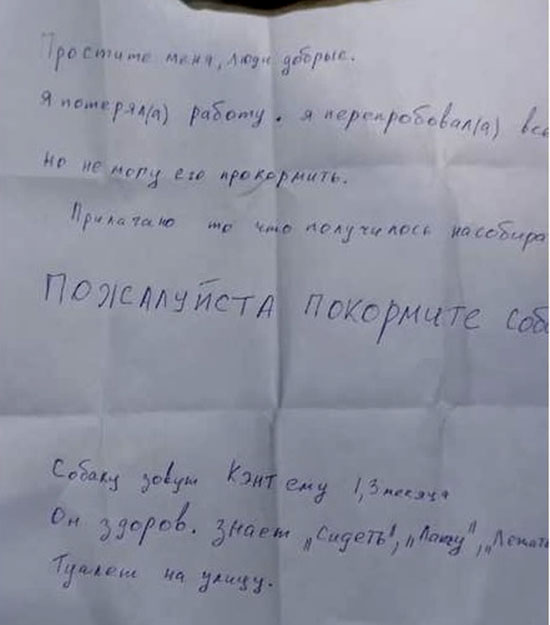 Простите меня, люди добрые.
Я потерял(а) работу. я перепробовал(а) все
но не могу его прокормить.
Прилагаю то что получилось насобира
ПОЖАЛУЙСТА ПОКОРМИТЕ соба
Собаку зовут Кэнт ему 1,3 месяца
Он здоров. знает „Сидеть", „Лапу", „Лежать
Туалет на улицу.